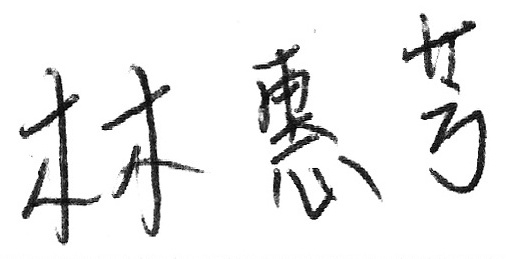 林惠芳